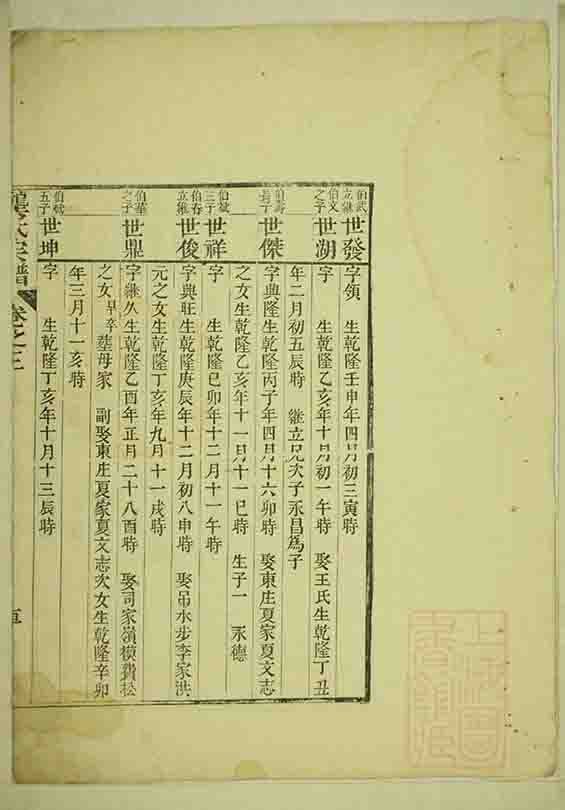 伯武立繼 世發 字領 生乾隆壬申年四月初三寅時
伯文之子 世湖 字 生乾隆乙亥年十月初一午時 娶王氏生乾隆丁丑
年二月初五辰時 繼立兄次子永昌為子
世傑 字典隆生乾隆丙子年四月十六卯時 娶東庄夏家夏文志
之女生乾隆乙亥年十一月十一巳時 生子一 永德
三子 世祥 字 生乾隆己卯年十二月十一午時
立繼 世俊 字典旺生乾隆庚辰年十二月初八申時 娶吊水步李家洪
元之女生乾隆丁亥年九月十一戌時
伯華之子 世鼎 字繼久生乾隆乙酉年正月二十八酉時 娶司家嶺模費松
之女早卒塟母家 副娶東庄夏家夏文志次女生乾隆辛卯
年三月十一亥時
五子 世坤 字 生乾隆丁亥年十月十三辰時
氏宗譜 卷之三